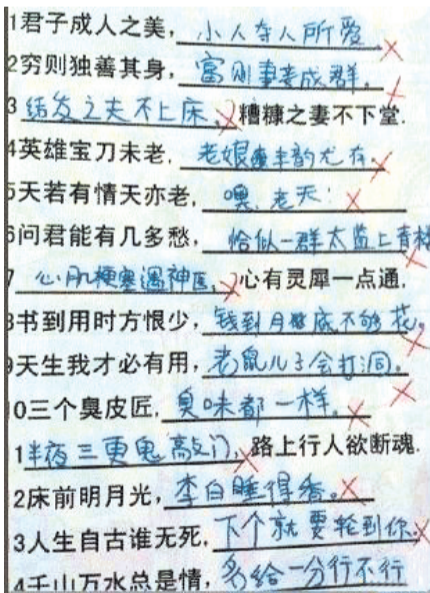 1君子成人之美，小人夺人所爱。
2穷则独善其身，富则妻妾成群。
3结发之夫不上床，糟糠之妻不下堂.
4英雄宝刀未老，老娘丰韵尤存
5天若有情天亦老，噢，老天！
6问君能有几多愁，恰似一群太监上青楼
7心肌梗塞遇神医，心有灵犀一点通.
8书到用时方恨少，钱到月底不够花。
9天生我才必有用，老鼠儿子会打洞。
10三个臭皮匠，臭味都一样。
1半夜三更鬼敲门，路上行人欲断魂.
2床前明月光，李白睡得香。
3人生自古谁无死，下个就要轮到你。
4千山万水总是情，多给一分行不行